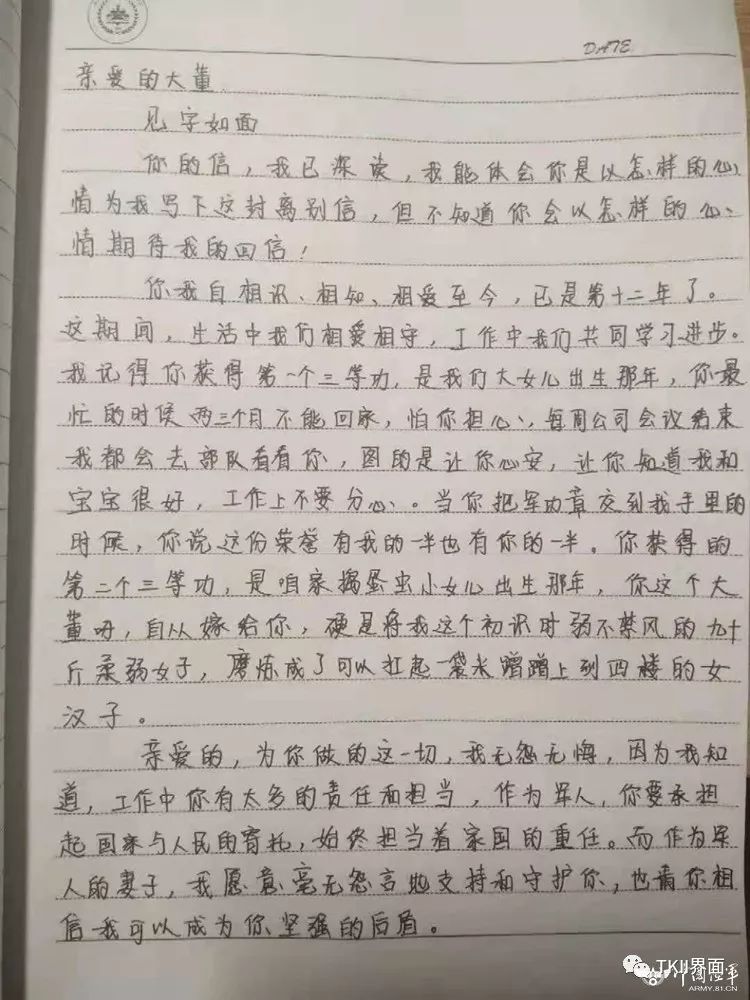 DATE
亲爱的大董
见字如面
你的信，我已深读，我能体会你是以怎样的心
情为我写下这封离别信，但不知道你会以怎样的心
情期待我的回信！
你我自相识、相知、相爱至今，已是第十二年了。
这期间，生活中我们相爱相守，工作中我们共同学习进步。
我记得你获得第一个三等功，是我们大女儿出生那年，你最
忙的时候两三个月不能回家，怕你担心，每周公司会议结束
我都会去部队看看你，图的是让你心安，让你知道我和
宝宝很好，工作上不要分心。当你把军功章交到我手里的
时候，你说这份荣誉有我的一半也有你的一半。你获得的
第二个三等功，是咱家捣蛋虫小女儿出生那年，你这个大
董呀，自从嫁给你，硬是将我这个初识时弱不禁风的九十
斤柔弱女子，磨炼成了可以扛起一袋米蹭蹭上到四楼的女
汉子。
亲爱的，为你做的这一切，我无怨无悔，因为我知
道，工作中你有太多的责任和担当，作为军人，你要承担
起国家与人民的寄托，始终担当着家国的重任。而作为军
人的妻子，我愿意毫无怨言地支持和守护你，也请你相
信我可以成为你坚强的后盾。
TKII界面
中国陆军
ARMY.81.CN